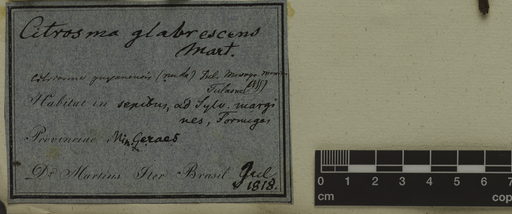 Citrosma glabrescens
Mart.
Citrosma guyanensis
Tulasne
Habitat in sepibus, ad Sylv. margi
nes, Formigas
Provinciae Min. Geraes
Dr Martius Iter Brasil Jul.
1818.
0 1 2 3 4 5 6 7
cm
cop